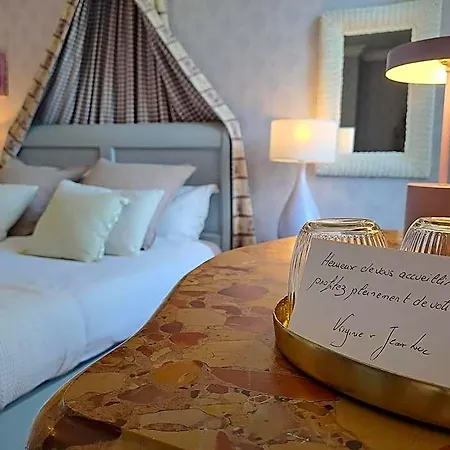 Heureux de vous accueillir
profitez pleinement de vot
Virginie + Jean Luc